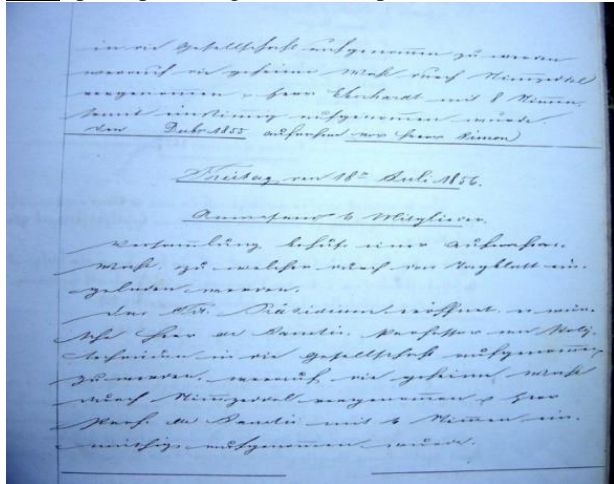 in die Gesellschaft aufgenommen zu werden
worauf die geheime Wahl durch Stimmzettel
vorgenommen & Herr Ehrhardt mit 8 Stimmen
somit einstimmig aufgenommen wurde.
den Decbr 1855 vor Herr Simon
Freitag, den 18ten Juli 1856.
Anwesend 6 Mitglieder.
Versammlung behufs einer Aufnahms-
Wahl zu welcher durch das Tagblatt ein-
geladen worden.
Das Tit. Präsidium eröffnet, es wün-
sche Herr de Sanctis, Professor am Poly-
technikum in die Gesellschaft aufgenommen
zu werden, worauf die geheime Wahl
durch Stimmzettel vorgenommen & Herr
Prof. de Sanctis mit 6 Stimmen ein-
müthig aufgenommen wurde.